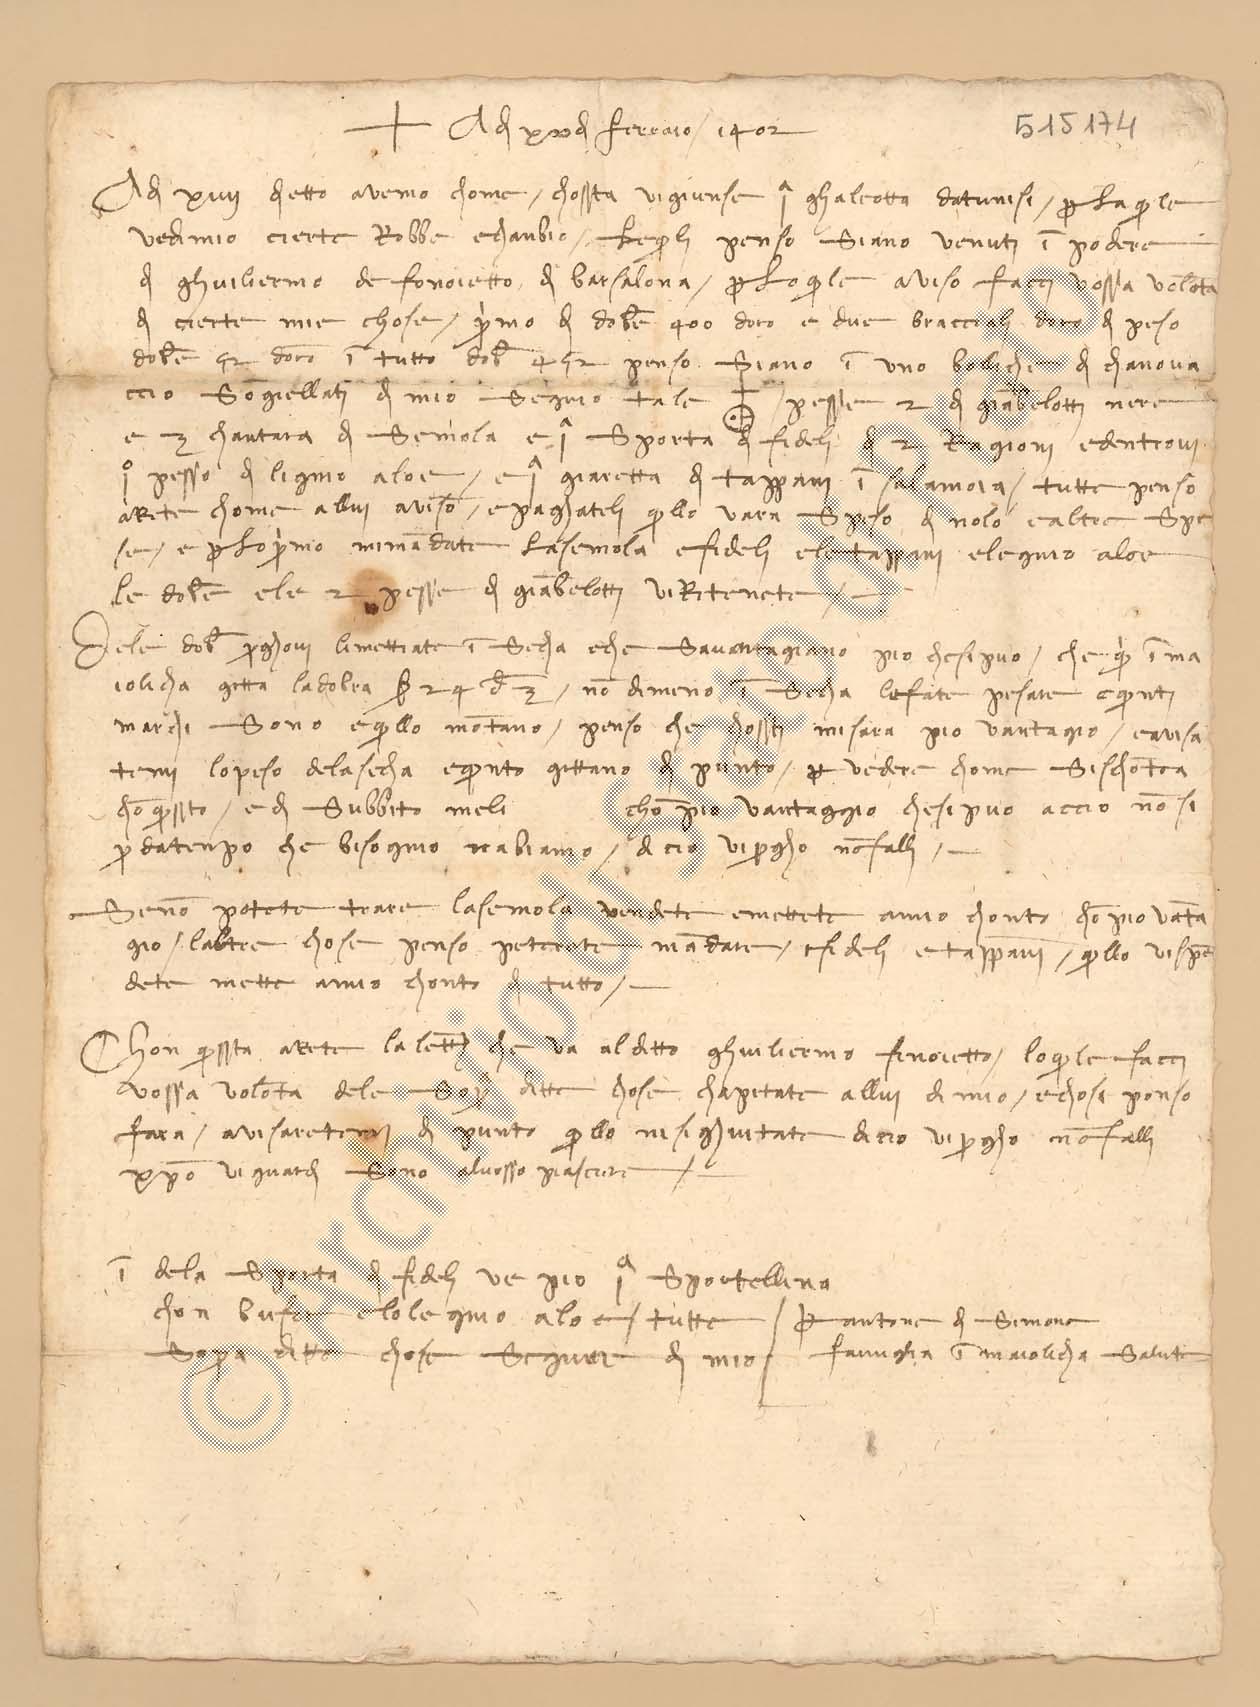 + Ad xxv di ferraio / 1402
515174
Ad xviiij detto avemo chome / chossta vigiense jª ghaleotta datunisi / p la qle
vedimio cierte Robbe echanbio / Leqli penso Siano venuti ī podere
di ghuiliermo de fonoietto di barsalona / p Loqle aviso facci vossa volōta
di cierte mie chose / pimo di dobē 400 doro e due bracciali doro di peso
dobē 52 doro ī tutto dobl 452 penso Siano ī uno di chanova
ccio Sogiellati di mio Segnio tale / pesse 2 di giābelotti nere
e 3 chantara di Semola e jª Sporta di fideli di 2 Ragioni edentrovi
jº pesso di lignio aloe / e jª giaretta di tappani ī salamoia / tutte penso
arete chome allui aviso / epaghateli qllo vara Speso di nolo ealtre Spe
se / e p Lopimo mimādate Lasemola efideli eletappani elegnio aloe
le dobē ele 2 pesse di giābelotti viRitenete /
Dele dobl pghovi limettiate ī Secha eche Savantagiano pio chesipuo / che q ī ma
iolicha gitta ladobra ß 24 d 3 / nō dimeno ī Secha lefate pesare eqnti
marchi Sono eqllo mōtano / penso che chossti misara pio vantagio / eavisa
temi lopeso delasecha eqnto gittano di punto / p vedere chome Sischōtra
chō qssto / e di Subbito meli chō pio vantaggio chesipuo accio nō si
pdatenpo che bisognio nabiamo / di cio vipgho nōfalli /
Senō potete trare lasemola vendete emettete amio chonto chō pio vāta
gio / laltre chose penso potrete mādare / efideli etappani / qllo vispē
dete mette amio chonto di tutto /
Chon qssta arete la lettª che va aldetto ghuiliermo fonoietto / loqle facci
vossa volōta dele Sop ditte chose chapitate allui di mio / echosi penso
fara / avisaretemi di punto qllo nisighuitate dicio vipgho nōfalli
xpō viguardi Sono alvosso piasciere /
ī dela Sporta di fideli ve pio jª Sportellina
chon elolegnio aloe / tutte
Sopra ditte chose Segnate di mio
p antone di Simone
famiglia ī maiolicha Salute
© Archivio di Stato di Prato